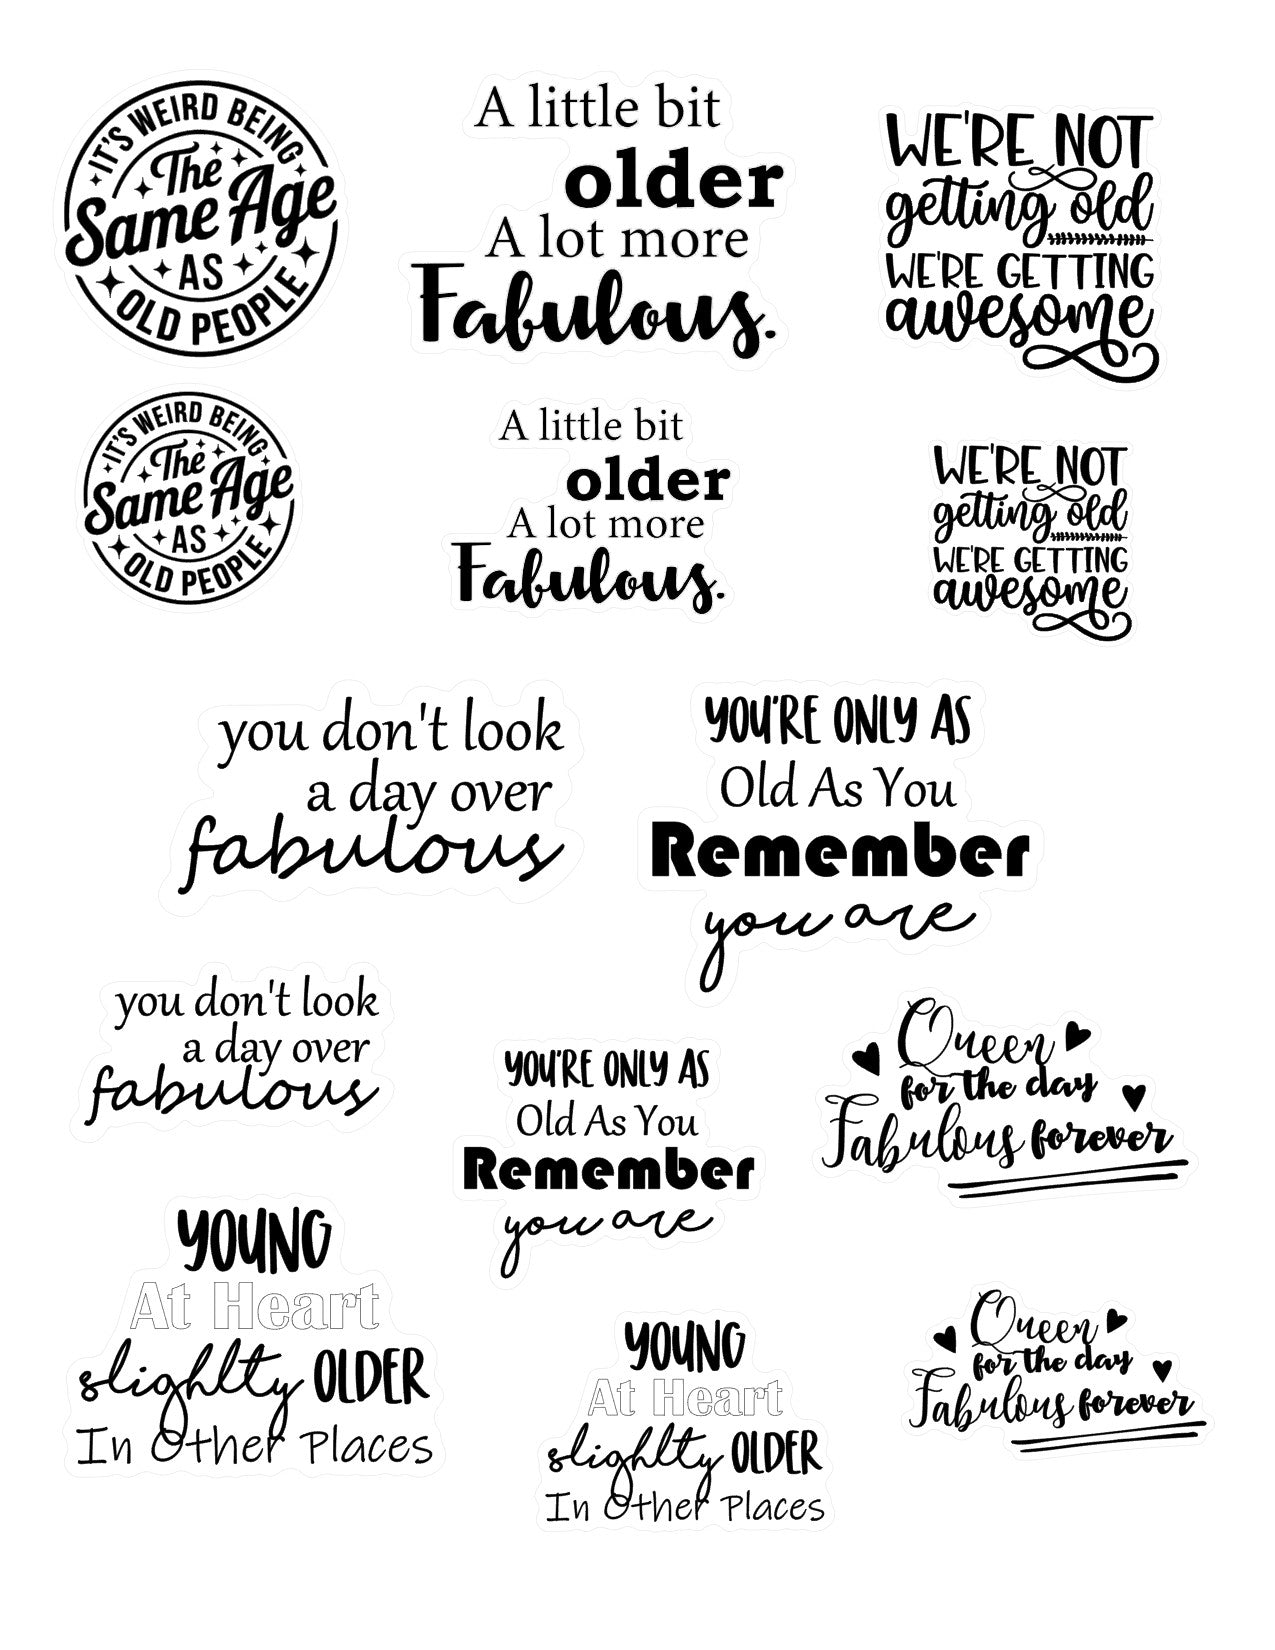 IT'S WEIRD BEING
The
Same Age
AS
OLD PEOPLE
A little bit
older
A lot more
Fabulous.
WE'RE NOT
getting old
WE'RE GETTING
awesome
IT'S WEIRD BEING
The
Same Age
AS
OLD PEOPLE
A little bit
older
A lot more
Fabulous.
WE'RE NOT
getting old
WE'RE GETTING
awesome
you don't look
a day over
fabulous
YOU'RE ONLY AS
Old As You
Remember
you are
you don't look
a day over
fabulous
YOU'RE ONLY AS
Old As You
Remember
you are
Queen
for the day
Fabulous forever
YOUNG
At Heart
slighlty OLDER
In Other Places
YOUNG
At Heart
slighlty OLDER
In Other Places
Queen
for the day
Fabulous forever